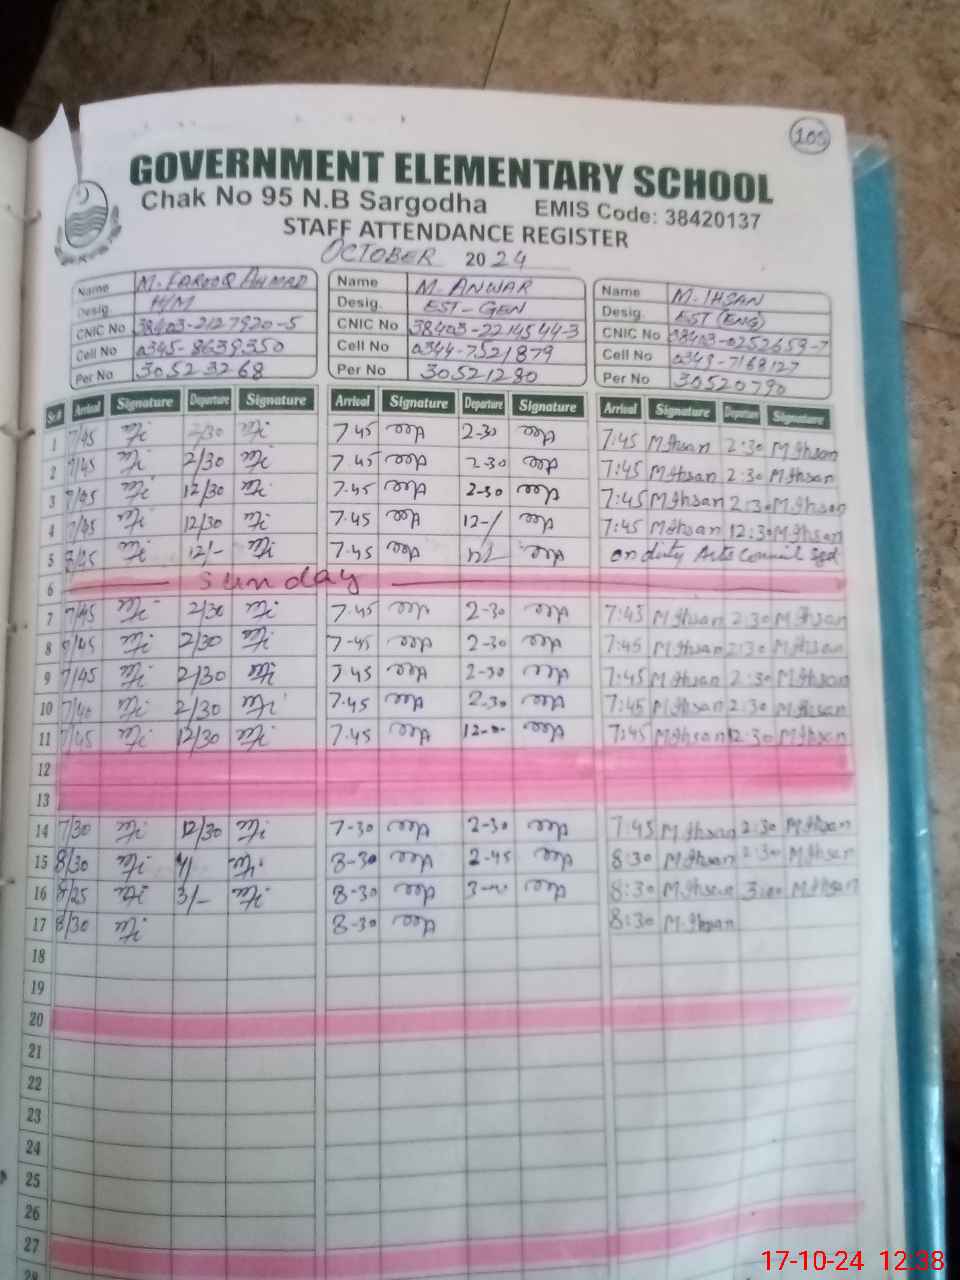 105
GOVERNMENT ELEMENTARY SCHOOL
Chak No 95 N.B Sargodha EMIS Code: 38420137
STAFF ATTENDANCE REGISTER
OCTOBER 2024
Name M. FAROOQ AHMAD Name M. ANWAR Name M. IHSAN
Desig H/M Desig. EST-GEN Desig. EST (ENG)
CNIC No 38403-2127920-5 CNIC No 38403-2214544-3 CNIC No 38403-0252659-7
Cell No 0345-8639350 Cell No 0344-7521879 Cell No 0349-7168127
Per No 30523268 Per No 30521280 Per No 30520790
Sr.# Arrival Signature Departure Signature Arrival Signature Departure Signature Arrival Signature Departure Signature
1 7/45 2/30 7.45 2-30 7:45 M Ihsan 2:30 M Ihsan
2 7/45 2/30 7.45 2-30 7:45 M Ihsan 2:30 M Ihsan
3 7/45 12/30 7.45 2-30 7:45 M Ihsan 2:30 M Ihsan
4 7/45 12/30 7.45 12-/ 7:45 M Ihsan 12:30 M Ihsan
5 12/- 7.45 on duty Arts Council sgd
6 Sunday
7 7/45 2/30 7.45 2-30 7:45 M Ihsan 2:30 M Ihsan
8 2/30 7-45 2-30 7:45 M Ihsan 2:30 M Ihsan
9 7/45 2/30 7.45 2-30 7:45 M Ihsan 2:30 M Ihsan
10 7/40 2/30 7.45 2-30 7:45 M Ihsan 2:30 M Ihsan
11 7/45 12/30 7.45 7:45 M Ihsan 12:30 M Ihsan
12
13
14 7/30 12/30 7-30 2-30 7:45 M Ihsan 2:30 M Ihsan
15 8/30 8-30 2-45 8:30 M Ihsan 2:30 M Ihsan
16 8/25 3/- 8-30 8:30 M Ihsan 3:00 M Ihsan
17 8/30 8-30 8:30 M Ihsan
18
19
20
21
22
23
24
25
26
27
28
17-10-24 12:38